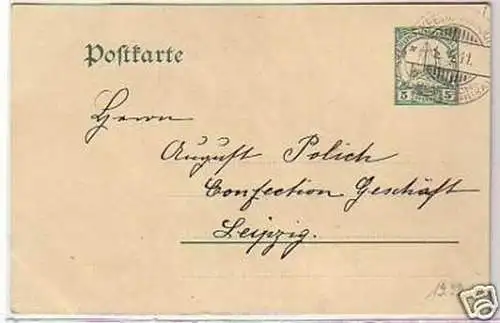 Postkarte
5 5
Herrn
August Polich
Confection Geschäft
Leipzig.